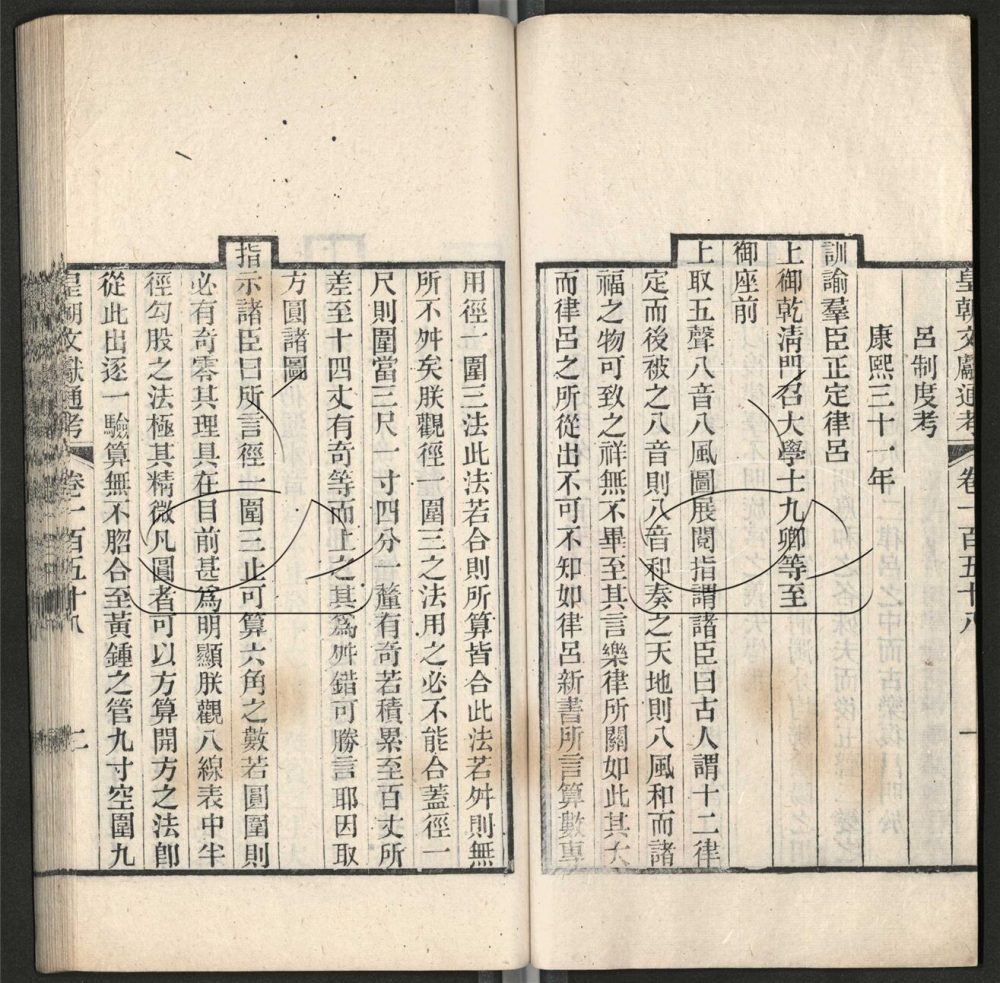 皇朝文獻通考 卷一百五十八 一
呂制度考
康熙三十一年
訓諭羣臣正定律呂
上御乾淸門召大學士九卿等至
御座前
上取五聲八音八風圖展閱指謂諸臣曰古人謂十二律
定而後被之八音則八音和奏之天地則八風和而諸
福之物可致之祥無不畢至其言樂律所關如此其大
而律呂之所從出不可不知如律呂新書所言算數專
用徑一圍三法此法若合則所算皆合此法若舛則無
所不舛矣朕觀徑一圍三之法用之必不能合蓋徑一
尺則圍當三尺一寸四分一釐有奇若積累至百丈所
差至十四丈有奇等而上之其爲舛錯可勝言耶因取
方圓諸圖
指示諸臣曰所言徑一圍三止可算六角之數若圓圍則
必有奇零其理具在目前甚爲明顯朕觀八線表中半
徑勾股之法極其精微凡圓者可以方算開方之法卽
從此出逐一驗算無不脗合至黃鍾之管九寸空圍九
皇朝文獻通考 卷一百五十八 二